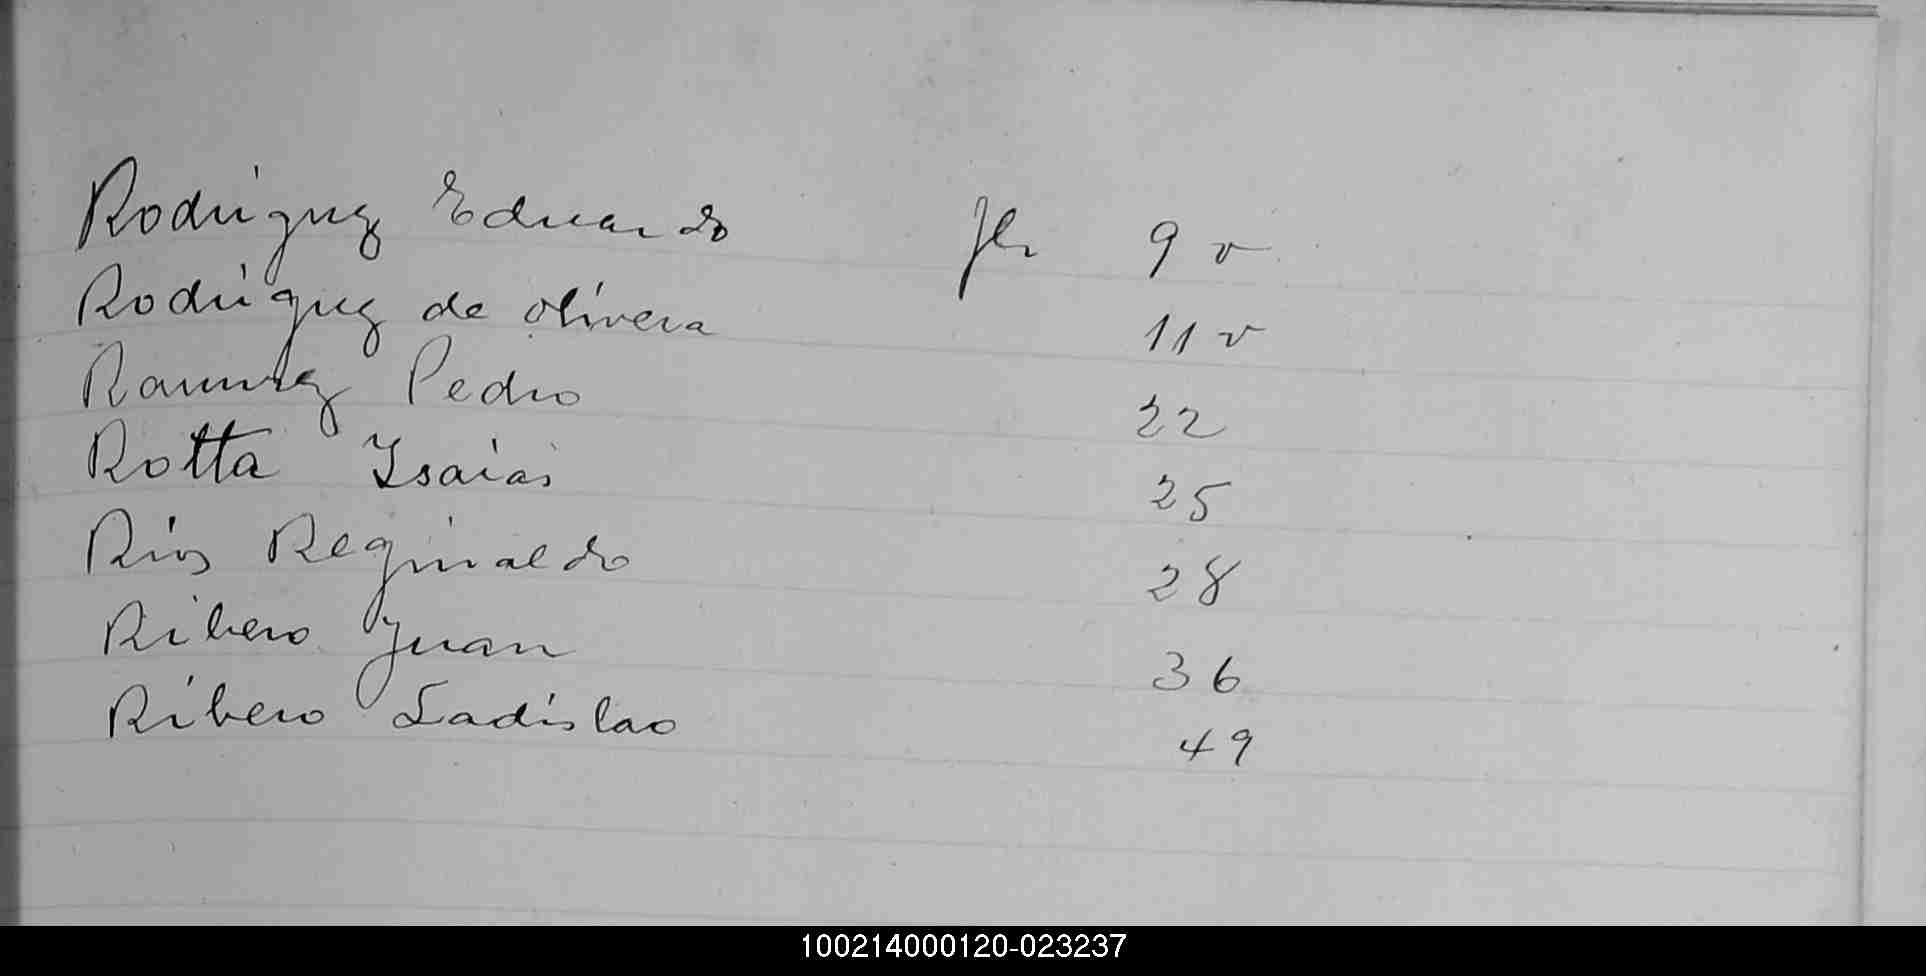 Rodriguez Eduardo fls 9 v
Rodriguez de Olivera 11 v
Ramirez Pedro 22
Rotta Isaias 25
Rios Reginaldo 28
Ribero Juan 36
Ribero Ladislao 49
100214000120-023237